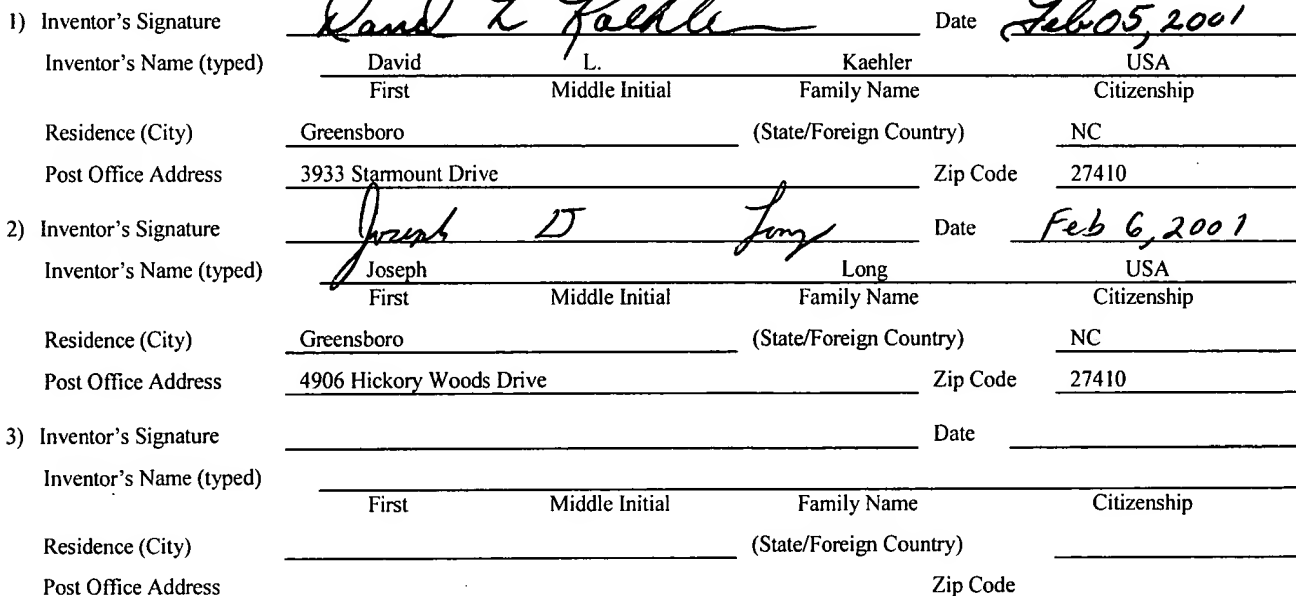 1) Inventor's Signature David L Kaehler Date Feb 05, 2001
Inventor's Name (typed) David L. Kaehler USA
First Middle Initial Family Name Citizenship
Residence (City) Greensboro (State/Foreign Country) NC
Post Office Address 3933 Starmount Drive Zip Code 27410
2) Inventor's Signature Joseph D Long Date Feb 6, 2001
Inventor's Name (typed) Joseph Long USA
First Middle Initial Family Name Citizenship
Residence (City) Greensboro (State/Foreign Country) NC
Post Office Address 4906 Hickory Woods Drive Zip Code 27410
3) Inventor's Signature Date
Inventor's Name (typed)
First Middle Initial Family Name Citizenship
Residence (City) (State/Foreign Country)
Post Office Address Zip Code